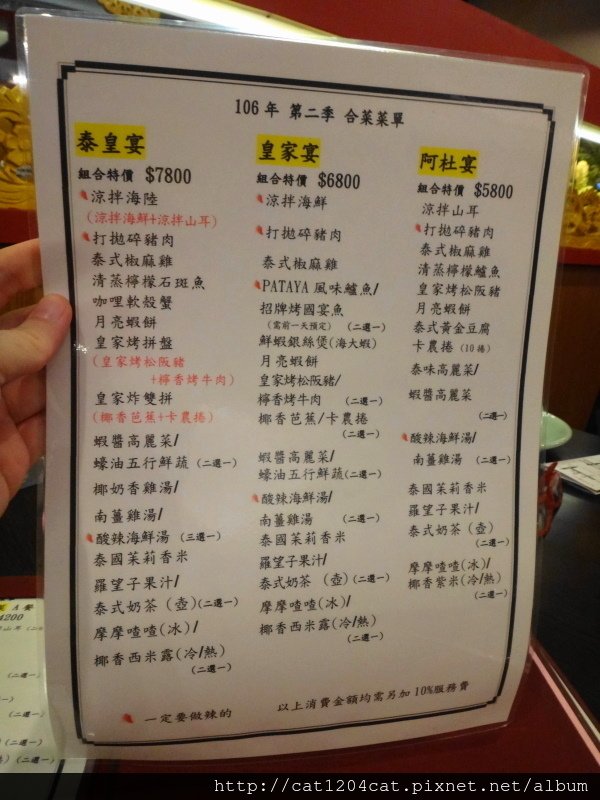 106年 第二季 合菜菜單
泰皇宴
組合特價 $7800
涼拌海陸
(涼拌海鮮+涼拌山耳)
打拋碎豬肉
泰式椒麻雞
清蒸檸檬石斑魚
咖哩軟殼蟹
月亮蝦餅
皇家烤拼盤
(皇家烤松阪豬
+檸香烤牛肉)
皇家炸雙拼
(椰香芭蕉+卡農捲)
蝦醬高麗菜/
蠔油五行鮮蔬 (二選一)
椰奶香雞湯/
南薑雞湯/
酸辣海鮮湯 (三選一)
泰國茉莉香米
羅望子果汁/
泰式奶茶 (壺)(二選一)
摩摩喳喳(冰)/
椰香西米露(冷/熱)
(二選一)
皇家宴
組合特價 $6800
涼拌海鮮
打拋碎豬肉
泰式椒麻雞
PATAYA 風味鱸魚/
招牌烤國宴魚
(需前一天預定) (二選一)
鮮蝦銀絲煲(海大蝦)
月亮蝦餅
皇家烤松阪豬/
檸香烤牛肉 (二選一)
椰香芭蕉/卡農捲
(二選一)
蝦醬高麗菜/
蠔油五行鮮蔬(二選一)
酸辣海鮮湯/
南薑雞湯 (二選一)
泰國茉莉香米
羅望子果汁/
泰式奶茶 (壺)(二選一)
摩摩喳喳(冰)/
椰香西米露(冷/熱)
(二選一)
阿杜宴
組合特價 $5800
涼拌山耳
打拋碎豬肉
泰式椒麻雞
清蒸檸檬鱸魚
皇家烤松阪豬
月亮蝦餅
泰式黃金豆腐
卡農捲 (10捲)
泰味高麗菜/
蝦醬高麗菜
(二選一)
酸辣海鮮湯/
南薑雞湯 (二選一)
泰國茉莉香米
羅望子果汁/
泰式奶茶 (壺)
(二選一)
摩摩喳喳(冰)/
椰香紫米(冷/熱)
(二選一)
一定要做辣的
以上消費金額均需另加 10%服務費
A 餐
4200
(二選一)
(二選一)
http://cat1204cat.pixnet.net/album